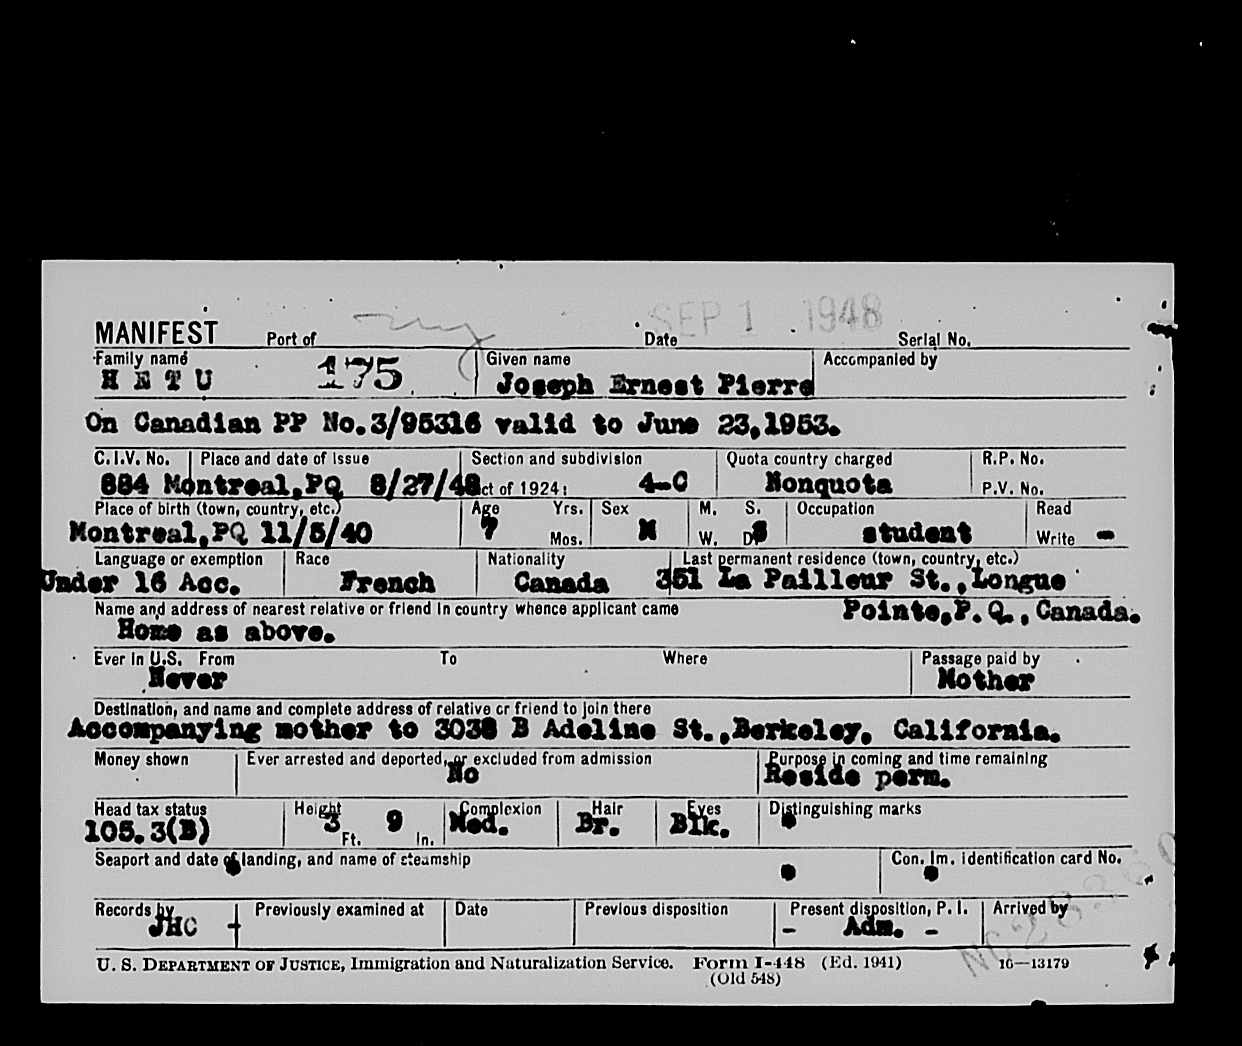 SEP 1 1948
MANIFEST Port of Date Serial No.
Family name Given name Acccmpanied by
HETU 175 Joseph Ernest Pierre
On Canadian PP No.3/95316 valid to June 23,1953.
C.I.V. No. Place and date of Issue Section and subdivision Quota country charged R.P. No.
884 Montreal,PQ 8/27/48 Act of 1924: 4-C Nonquota P.V. No.
Place of birth (town, country, etc.) Age Yrs. Sex M. S. Occupation Read
Montreal,PQ 11/5/40 7 Mos. M W. D. S student Write -
Language or exemption Race Nationality Last permanent residence (town, country, etc.)
Under 16 Acc. French Canada 351 La Pailleur St.,Longue
Name and address of nearest relative or friend in country whence applicant came Pointe,P.Q.,Canada.
Home as above.
Ever in U.S. From To Where Passage paid by
Never Mother
Destination, and name and complete address of relative or friend to join there
Accompanying mother to 3038 B Adeline St.,Berkeley, California.
Money shown Ever arrested and deported, or excluded from admission Purpose in coming and time remaining
No Reside perm.
Head tax status Height Complexion Hair Eyes Distinguishing marks
105.3(B) 3 Ft. 9 In. Med. Br. Blk.
Seaport and date of landing, and name of steamship Con. Im. Identification card No.
Records by Previously examined at Date Previous disposition Present disposition, P. I. Arrived by
JHC - Adm. -
U. S. DEPARTMENT OF JUSTICE, Immigration and Naturalization Service. Form I-448 (Ed. 1941) 16—13179
(Old 548)